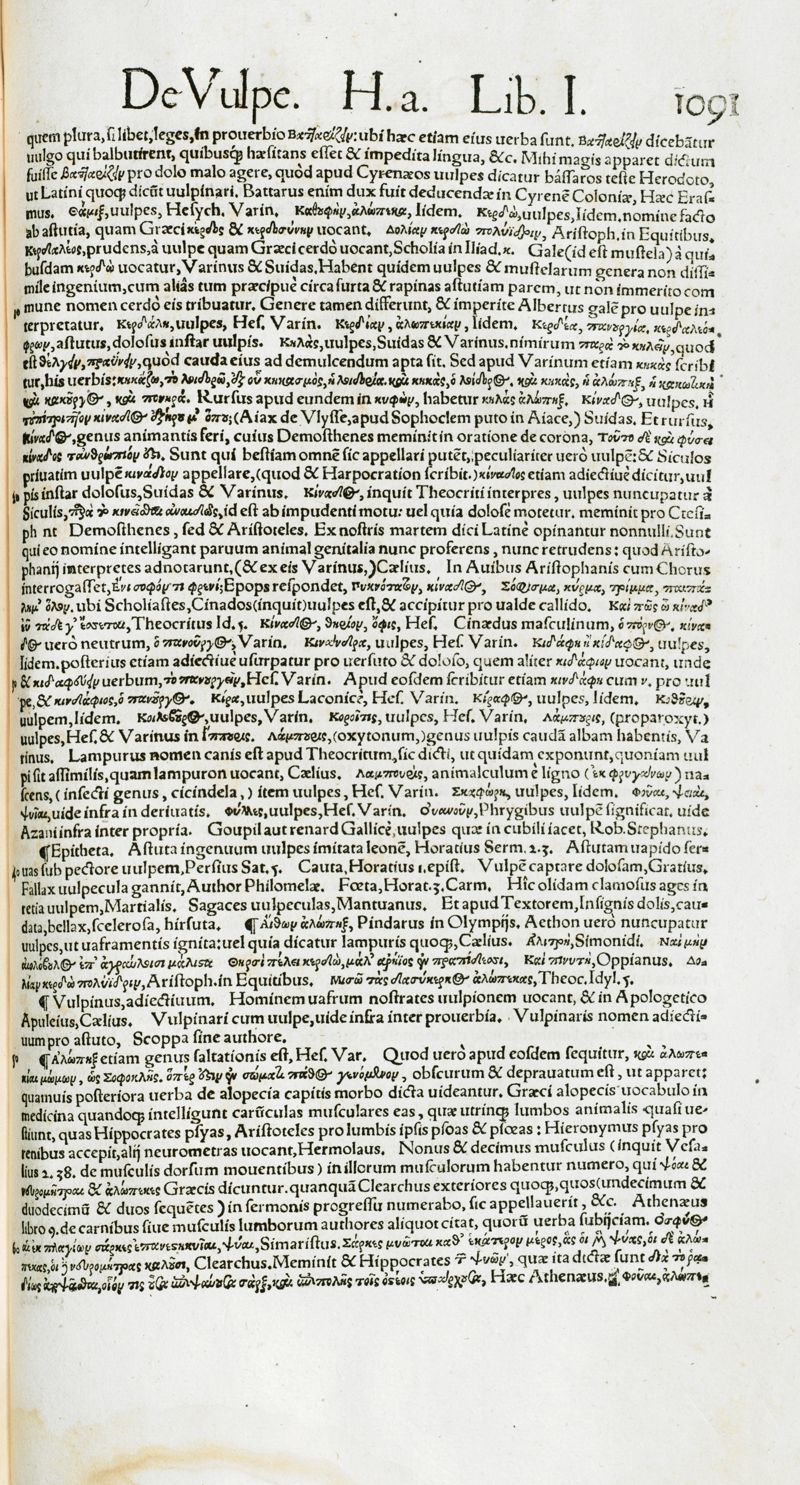 De Vulpe. H.a. Lib. I. 1091
quem plura, si libet, leges, in prouerbio Βατταρίζειν: ubi hæc etiam eius uerba sunt. Βατταρίζειν dicebātur
uulgo qui balbutirent, quibusq; hæsitans esset & impedita lingua, &c. Mihi magis apparet dictum
fuisse βατταρίζειν pro dolo malo agere, quòd apud Cyrenæos uulpes dicatur bassaros teste Herodoto,
ut Latini quoq; dicūt uulpinari. Battarus enim dux fuit deducendæ in Cyrenē Coloniæ, Hæc Eras
mus. Θάμιξ, uulpes, Hesych. Varin. ἀλώπεκα, Iidem. Κερδὼ, uulpes, Iidem. nomine facto
ab astutia, quam Græci κερδος & κερδοσύνην uocant. Δολίαν κερδὼ πολύϊδριν, Aristoph. in Equitibus.
Κερδαλέος, prudens, à uulpe quam Græci cerdò uocant, Scholia in Iliad. κ. Gale (id est mustela) à qui/
busdam κερδὼ uocatur, Varinus & Suidas. Habent quidem uulpes & mustelarum genera non dissi/
mile ingenium, cum aliâs tum præcipuè circa furta & rapinas astutiam parem, ut non immerito com
mune nomen cerdò eis tribuatur. Genere tamen differunt, & imperite Albertus galē pro uulpe in/
10 terpretatur. Κερδάλη, uulpes, Hes. Varin. Κερδίαν, ἀλωπεκίαν, Iidem. Κερδία, πανουργία, κερδαλεό/
φρων, astutus, dolosus instar uulpis. Κηλὰς, uulpes, Suidas & Varinus. nimirum παρὰ τὸ κηλεῖν, quod
est θέλγειν, πραΰνειν, quòd cauda eius ad demulcendum apta sit. Sed apud Varinum etiam κηκὰς scribi
tur, his uerbis: κηκάζω, τὸ λοιδορῶ, ἐξ οὗ κηκασμός, ἡ λοιδορία. καὶ κηκὰς, ὁ λοίδορος. καὶ κηκὰς, ἡ ἀλώπηξ, ἡ κακωτικὴ
καὶ κακοῦργος, καὶ πονηρά. Rursus apud eundem in κυφῶν, habetur κηλὰς ἀλώπηξ. Κίναδος, uulpes. Ἦ
τοὐπίτριπτον κίναδος ἐξήρου μ' ὅπου; (Aiax de Vlysse, apud Sophoclem puto in Aiace,) Suidas. Et rursus,
Κίναδος, genus animantis feri, cuius Demosthenes meminit in oratione de corona, Τοῦτο δὲ καὶ φύσει
κίναδος τἀνθρώπιόν ἐστι. Sunt qui bestiam omnē sic appellari putēt, peculiariter uerò uulpē: & Siculos
priuatim uulpē κινάδιον appellare, (quod & Harpocration scribit.) κίναδος etiam adiectiuè dicitur, uul
20 pis instar dolosus, Suidas & Varinus. Κίναδος, inquit Theocriti interpres, uulpes nuncupatur à
Siculis, παρὰ τὸ κινεῖσθαι ἀναιδῶς, id est ab impudenti motu: uel quia dolosè motetur. meminit pro Ctesi/
ph nt Demosthenes, sed & Aristoteles. Ex nostris martem dici Latinè opinantur nonnulli. Sunt
qui eo nomine intelligant paruum animal genitalia nunc proferens, nunc retrudens: quod Aristo/
phanij interpretes adnotarunt, (& ex eis Varinus,) Cælius. In Auibus Aristophanis cum Chorus
interrogasset, Ἔνι σοφόν τι φρενί; Epops respondet, Πυκνότατον, κίναδος, Σόφισμα, κύρμα, τρίμμα, παιπά/
λημ' ὅλον. ubi Scholiastes, Cinados (inquit) uulpes est, & accipitur pro ualde callido. Καὶ πῶς ὦ κίναδε
Theocritus Id. 5. Κίναδος, θηρίον, ὄφις, Hes. Cinædus masculinum, ὁ πόρνος, κίνα/
δος uerò neutrum, ὁ πανοῦργος, Varin. uulpes, Hes. Varin. Κιδάφη ἢ κίδαφος, uulpes,
Iidem. posterius etiam adiectiuè usurpatur pro uersuto & doloso, quem aliter κιδάφιον uocant, unde
30 & κιδαφεύειν uerbum, τὸ πανουργεῖν, Hes. Varin. Apud eosdem scribitur etiam κινδάφη cum ν. pro uul
pe, & κινδάφιος, ὁ πανοῦργος. Κίρα, uulpes Laconicè, Hes. Varin. Κίραφος, uulpes, Iidem.
uulpem, Iidem. uulpes, Varin. uulpes, Hes. Varin. Λάμπουρις, (proparoxyt.)
uulpes, Hes. & Varinus in Ἵππουρις. Λάμπουρις, (oxytonum,) genus uulpis caudā albam habentis, Va
rinus. Lampurus nomen canis est apud Theocritum, sic dicti, ut quidam exponunt, quoniam uul
pi sit assimilis, quam lampuron uocant, Cælius. Λαμπουρὶς, animalculum è ligno (ἐκ φρυγάνων) na/
scens, (insecti genus, cicindela,) item uulpes, Hes. Varin. Σκαφώρη, uulpes, Iidem. Φοῦαι,
uide infra in deriuatis. uulpes, Hes. Varin. Οὐανοῦν, Phrygibus uulpē significat. uide
Azani infra inter propria. Goupil aut renard Gallicè, uulpes quæ in cubili iacet, Rob. Stephanus.
¶ Epitheta. Astuta ingenuum uulpes imitata leonē, Horatius Serm. 2.3. Astutam uapido ser/
40 uas sub pectore uulpem, Persius Sat. 5. Cauta, Horatius 1. epist. Vulpē captare dolosam, Gratius.
Fallax uulpecula gannit, Author Philomelæ. Fœta, Horat. 3. Carm. Hîc olidam clamosus ages in
retia uulpem, Martialis. Sagaces uulpeculas, Mantuanus. Et apud Textorem, Insignis dolis, cau/
data, bellax, scelerosa, hirsuta. ¶ Αἴθων ἀλώπηξ, Pindarus in Olympijs. Aethon uerò nuncupatur
uulpes, ut uaframentis ignita: uel quia dicatur lampuris quoq;, Cælius. Ἀλιτρὴ, Simonidi. Ναὶ μὴν
Oppianus. Δο/
λίαν κερδὼ πολύϊδριν, Aristoph. in Equitibus. Μισῶ τὰς δασυκέρκος ἀλώπεκας, Theoc. Idyl. 5.
¶ Vulpinus, adiectiuum. Hominem uafrum nostrates uulpionem uocant, & in Apologetico
Apuleius, Cælius. Vulpinari cum uulpe, uide infra inter prouerbia. Vulpinaris nomen adiecti/
uum pro astuto, Scoppa sine authore.
50 ¶ Ἀλώπηξ etiam genus saltationis est, Hes. Var. Quod uerò apud eosdem sequitur, καὶ ἀλωπε/
ὡς Σοφοκλῆς. ὅπερ ἐστὶν ἐν σώματι πάθος γινόμενον, obscurum & deprauatum est, ut apparet:
quamuis posteriora uerba de alopecia capitis morbo dicta uideantur. Græci alopecis uocabulo in
medicina quandoq; intelligunt carūculas musculares eas, quæ utrinq; lumbos animalis quasi ue/
stiunt, quas Hippocrates psyas, Aristoteles pro lumbis ipsis psoas & psœas: Hieronymus psyas pro
renibus accepit, alij neurometras uocant, Hermolaus. Nonus & decimus musculus (inquit Vesa/
lius 2.38. de musculis dorsum mouentibus) in illorum musculorum habentur numero, qui ψόαι &
νευρομῆτραι & ἀλώπεκες Græcis dicuntur. quanquā Clearchus exteriores quoq;, quos (undecimum &
duodecimū & duos sequētes) in sermonis progressu numerabo, sic appellauerit, &c. Athenæus
libro 9. de carnibus siue musculis lumborum authores aliquot citat, quorū uerba subijciam. Ὀσφῦς
60 αἱ ἐκ πλαγίων σάρκες ἐπανεστηκυῖαι, ψύαι, Simaristus. Σάρκες μυωταὶ καθ' ἑκάτερον μέρος, ἃς οἱ μὲν ψύας, οἱ δὲ ἀλώ/
πεκας, οἱ δὲ νευρομήτρας καλοῦσι, Clearchus. Meminit & Hippocrates τῶν ψυῶν, quæ ita dictæ sunt διὰ τὸ ῥα/
δίως ἀποψᾶσθαι, οἷον τις οὖσα ἐπιψαύουσα σὰρξ, καὶ ἐπιπολῆς τοῖς ὀστέοις ὑπάρχουσα, Hæc Athenæus. Φοῦαι, ἀλώπε/